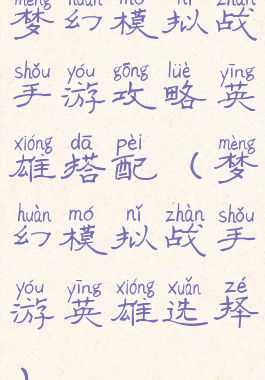 mèng huàn mó nǐ zhàn
梦幻模拟战
shǒu yóu gōng lüè yīng
手游攻略英
xióng dā pèi mèng
雄搭配（梦
huàn mó nǐ zhàn shǒu
幻模拟战手
yóu yīng xióng xuǎn zé
游英雄选择
）